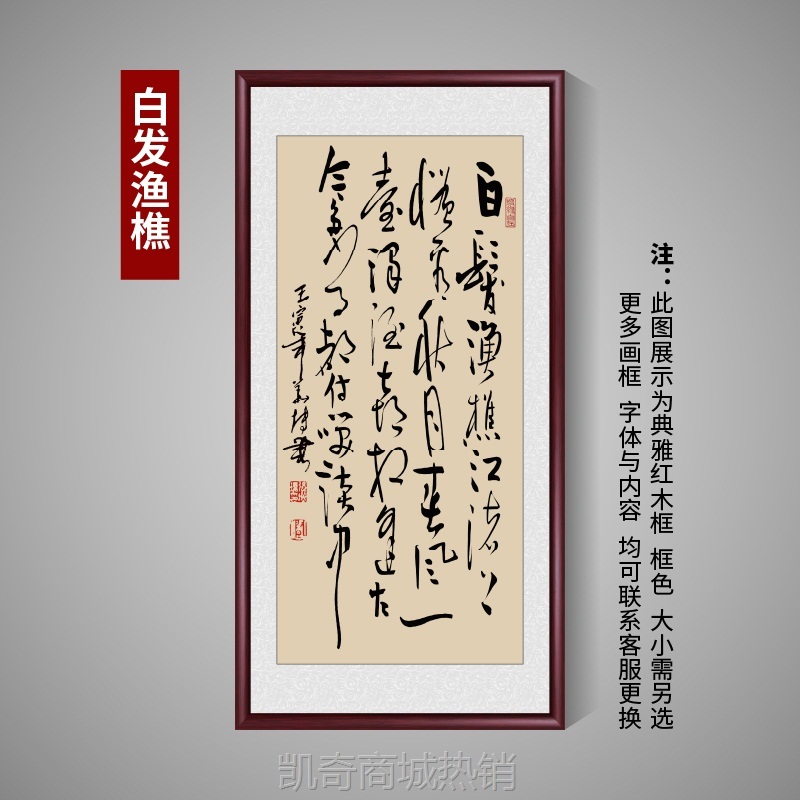 白发渔樵
白髮漁樵江渚上
慣看秋月春風一
壺濁酒喜相逢古
今多少事都付笑談中
壬寅年
注：此图展示为典雅红木框 框色 大小需另选
更多画框 字体与内容 均可联系客服更换
凯奇商城热销